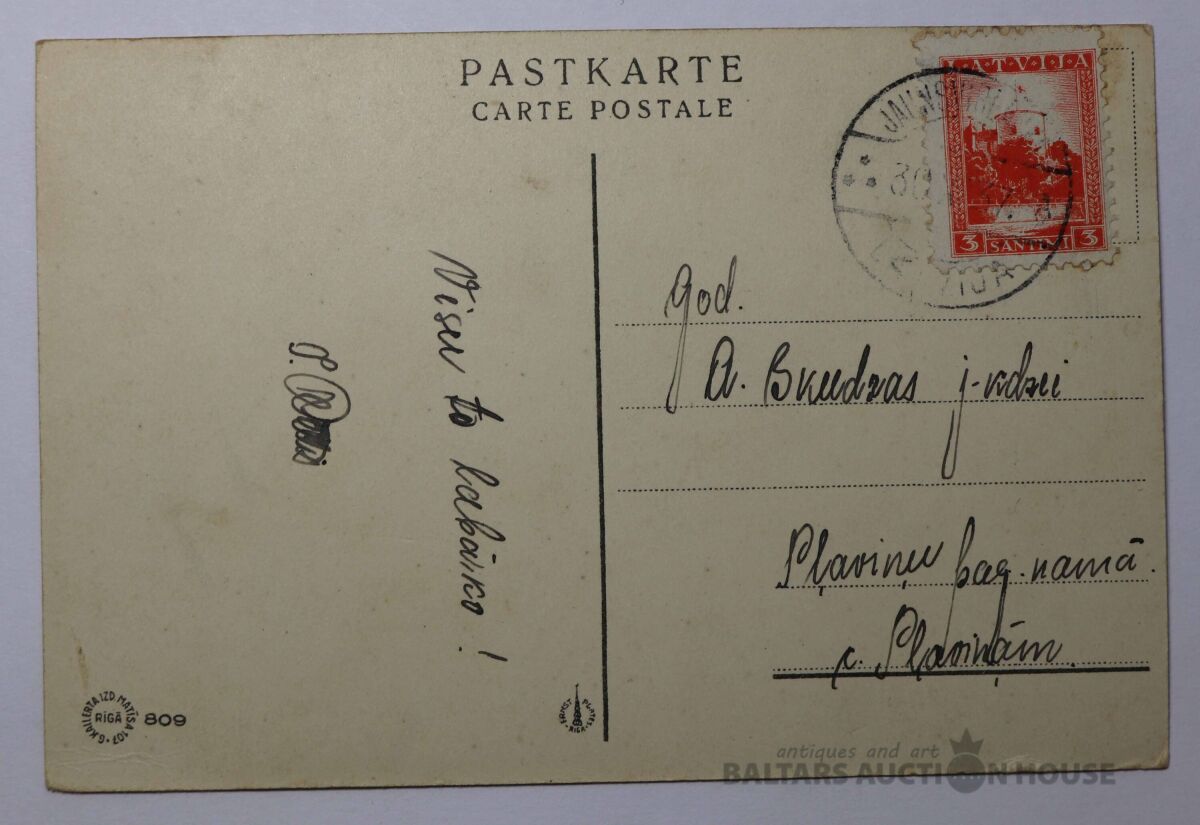 PASTKARTE
CARTE POSTALE
LATVIJA
3 SANTIMI 3
Visu to labāko!
P.
God.
A. Bkudzas j-kdzei
Pļaviņu pag. namā.
c. Pļaviņām.
G. KAILERTA IZD. MATĪSA 107
RĪGĀ
809
ERNST PLATES
RIGA
antiques and art
BALTARS AUCTION HOUSE